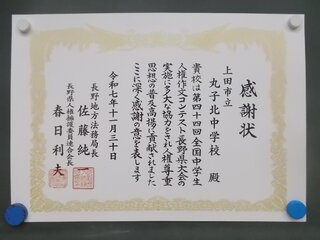 感謝状
上田市立
丸子北中学校 殿
貴校は第四十四回全国中学生
人権作文コンテスト長野県大会の
実施に多大な協力をされ人権尊重
思想の普及高揚に貢献されました
ここに深く感謝の意を表します
令和七年十一月三十日
長野地方法務局長
佐藤純
長野県人権擁護委員連合会長
春日利夫